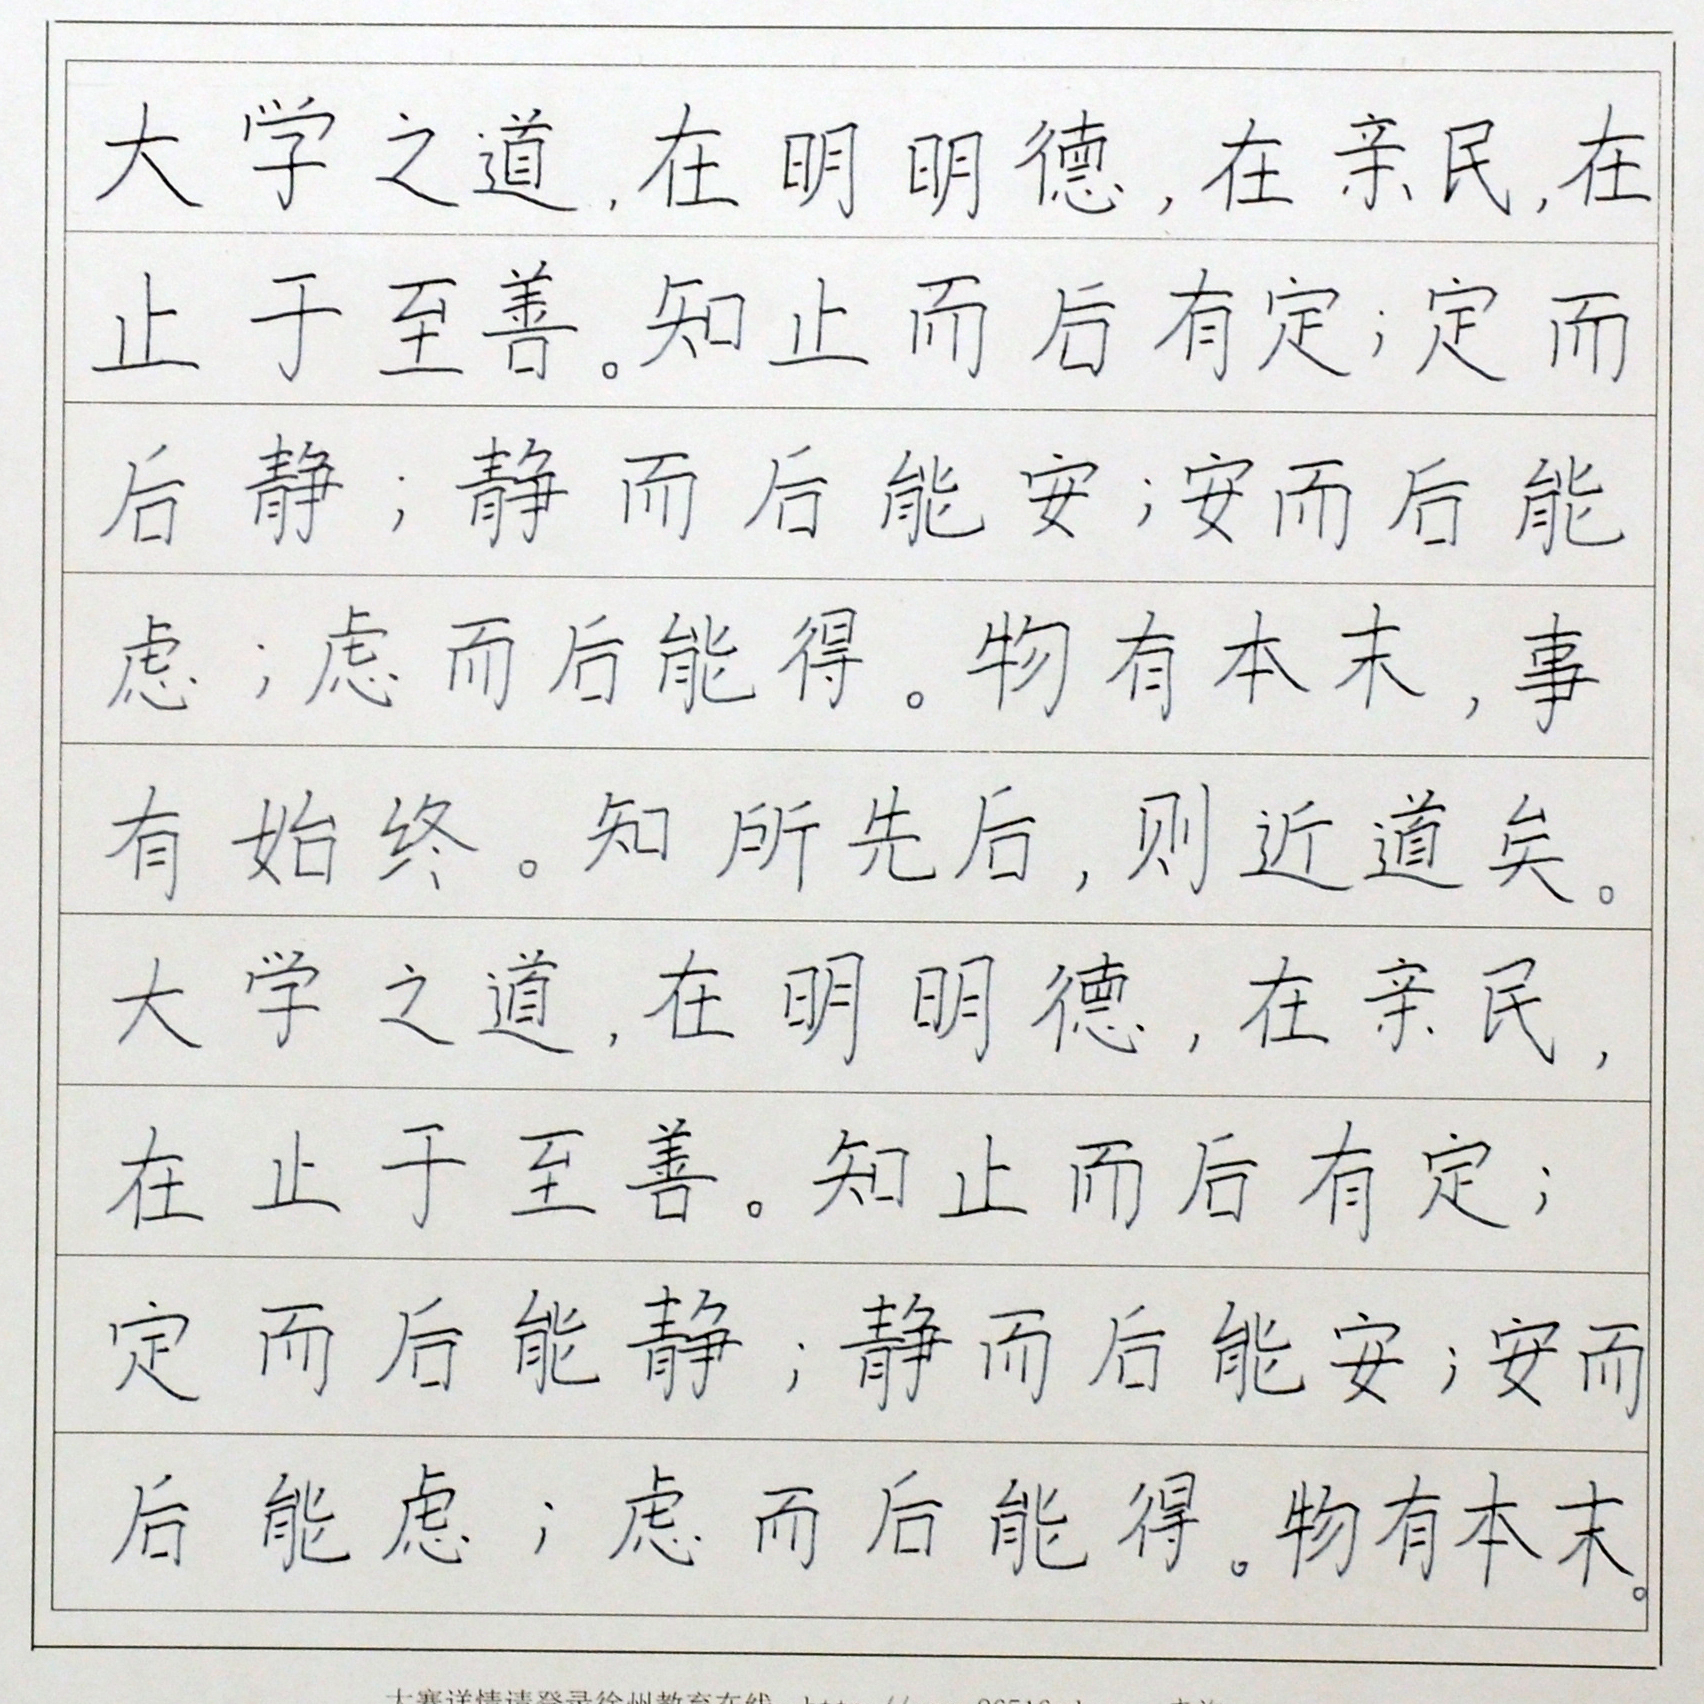 大学之道,在明明德,在亲民,在
止于至善。知止而后有定;定而
后静;静而后能安;安而后能
虑;虑而后能得。物有本末,事
有始终。知所先后,则近道矣。
大学之道,在明明德,在亲民,
在止于至善。知止而后有定;
定而后能静;静而后能安;安而
后能虑;虑而后能得。物有本末。
大赛详情请登录徐州教育在线